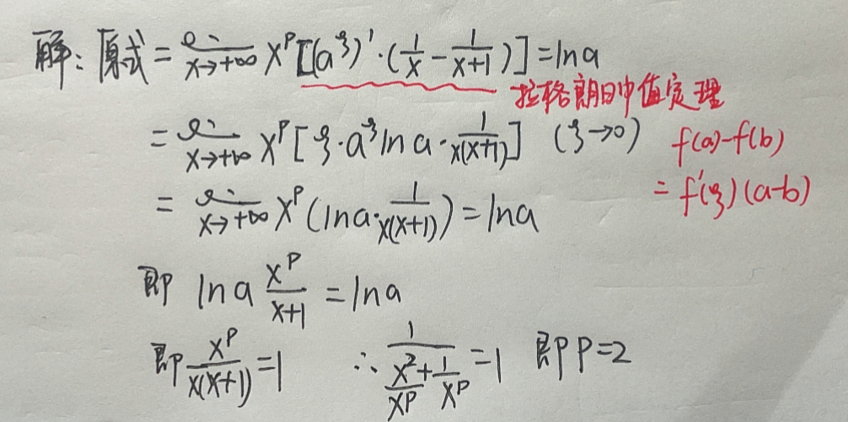 解:原式=lim x→+∞ x^P[(a^ξ)'·(1/x-1/(x+1))]=lna
拉格朗日中值定理
=lim x→+∞ x^P[ξ·a^ξ lna·1/(x(x+1))] (ξ→0)
f(a)-f(b)
=f'(ξ)(a-b)
=lim x→+∞ x^P(lna·1/(x(x+1)))=lna
即 lna x^P/(x+1)=lna
即 x^P/(x(x+1))=1 ∴ 1/(x²/x^P+1/x^P)=1 即P=2